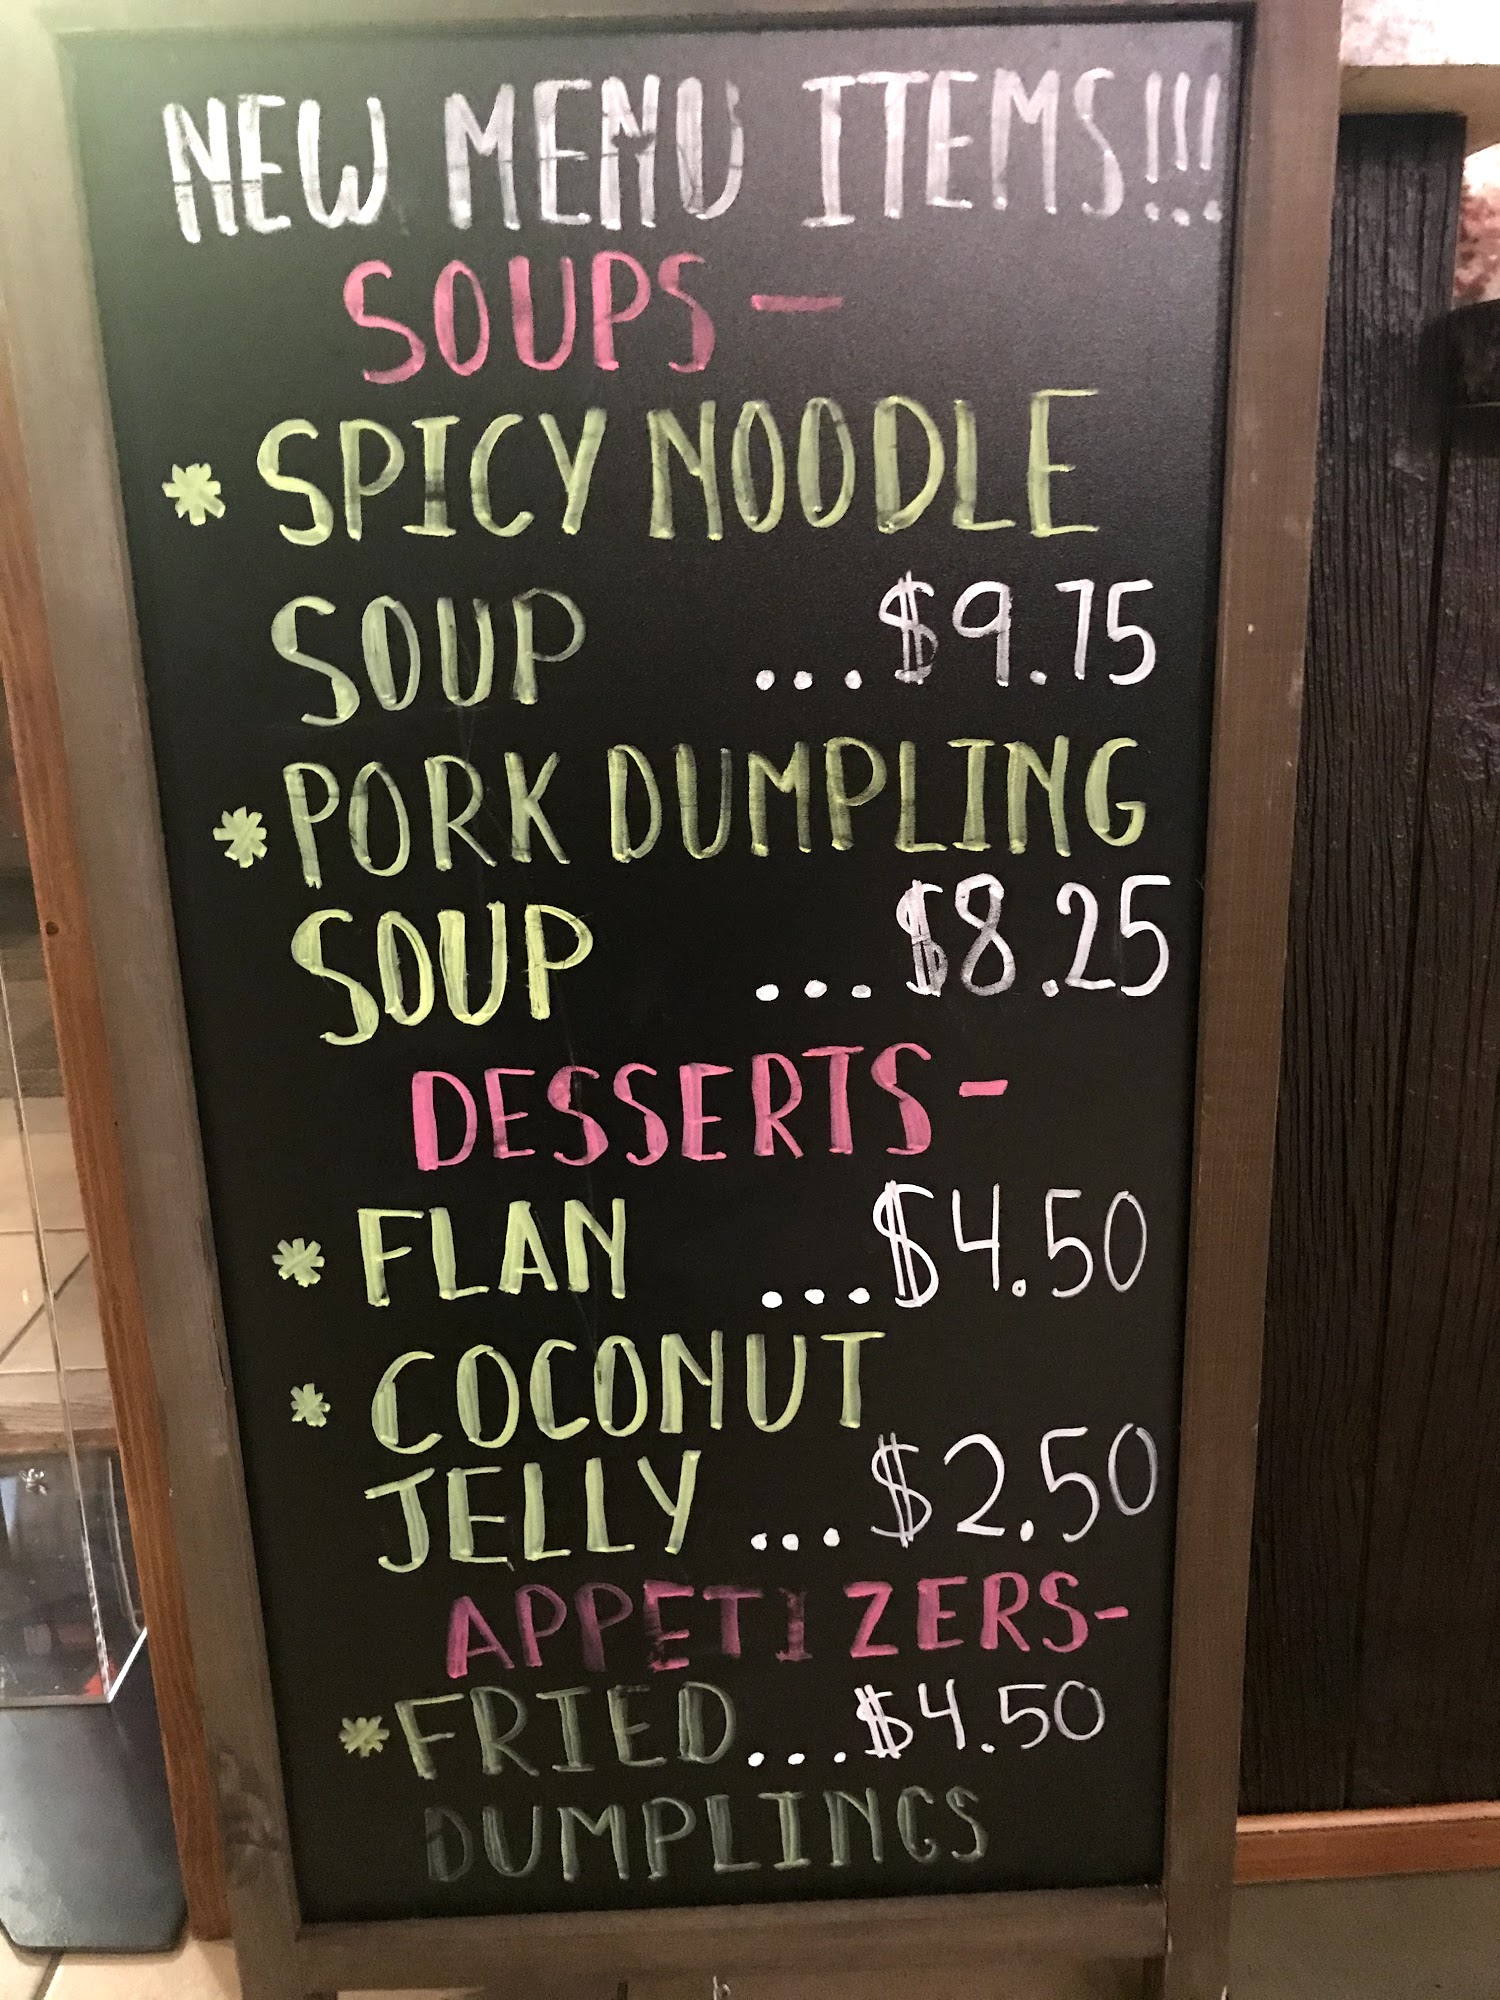 NEW MENU ITEMS!!!
SOUPS-
* SPICY NOODLE
SOUP ...$9.75
* PORK DUMPLING
SOUP ...$8.25
DESSERTS-
* FLAN ...$4.50
* COCONUT
JELLY ...$2.50
APPETIZERS-
* FRIED...$4.50
DUMPLINGS